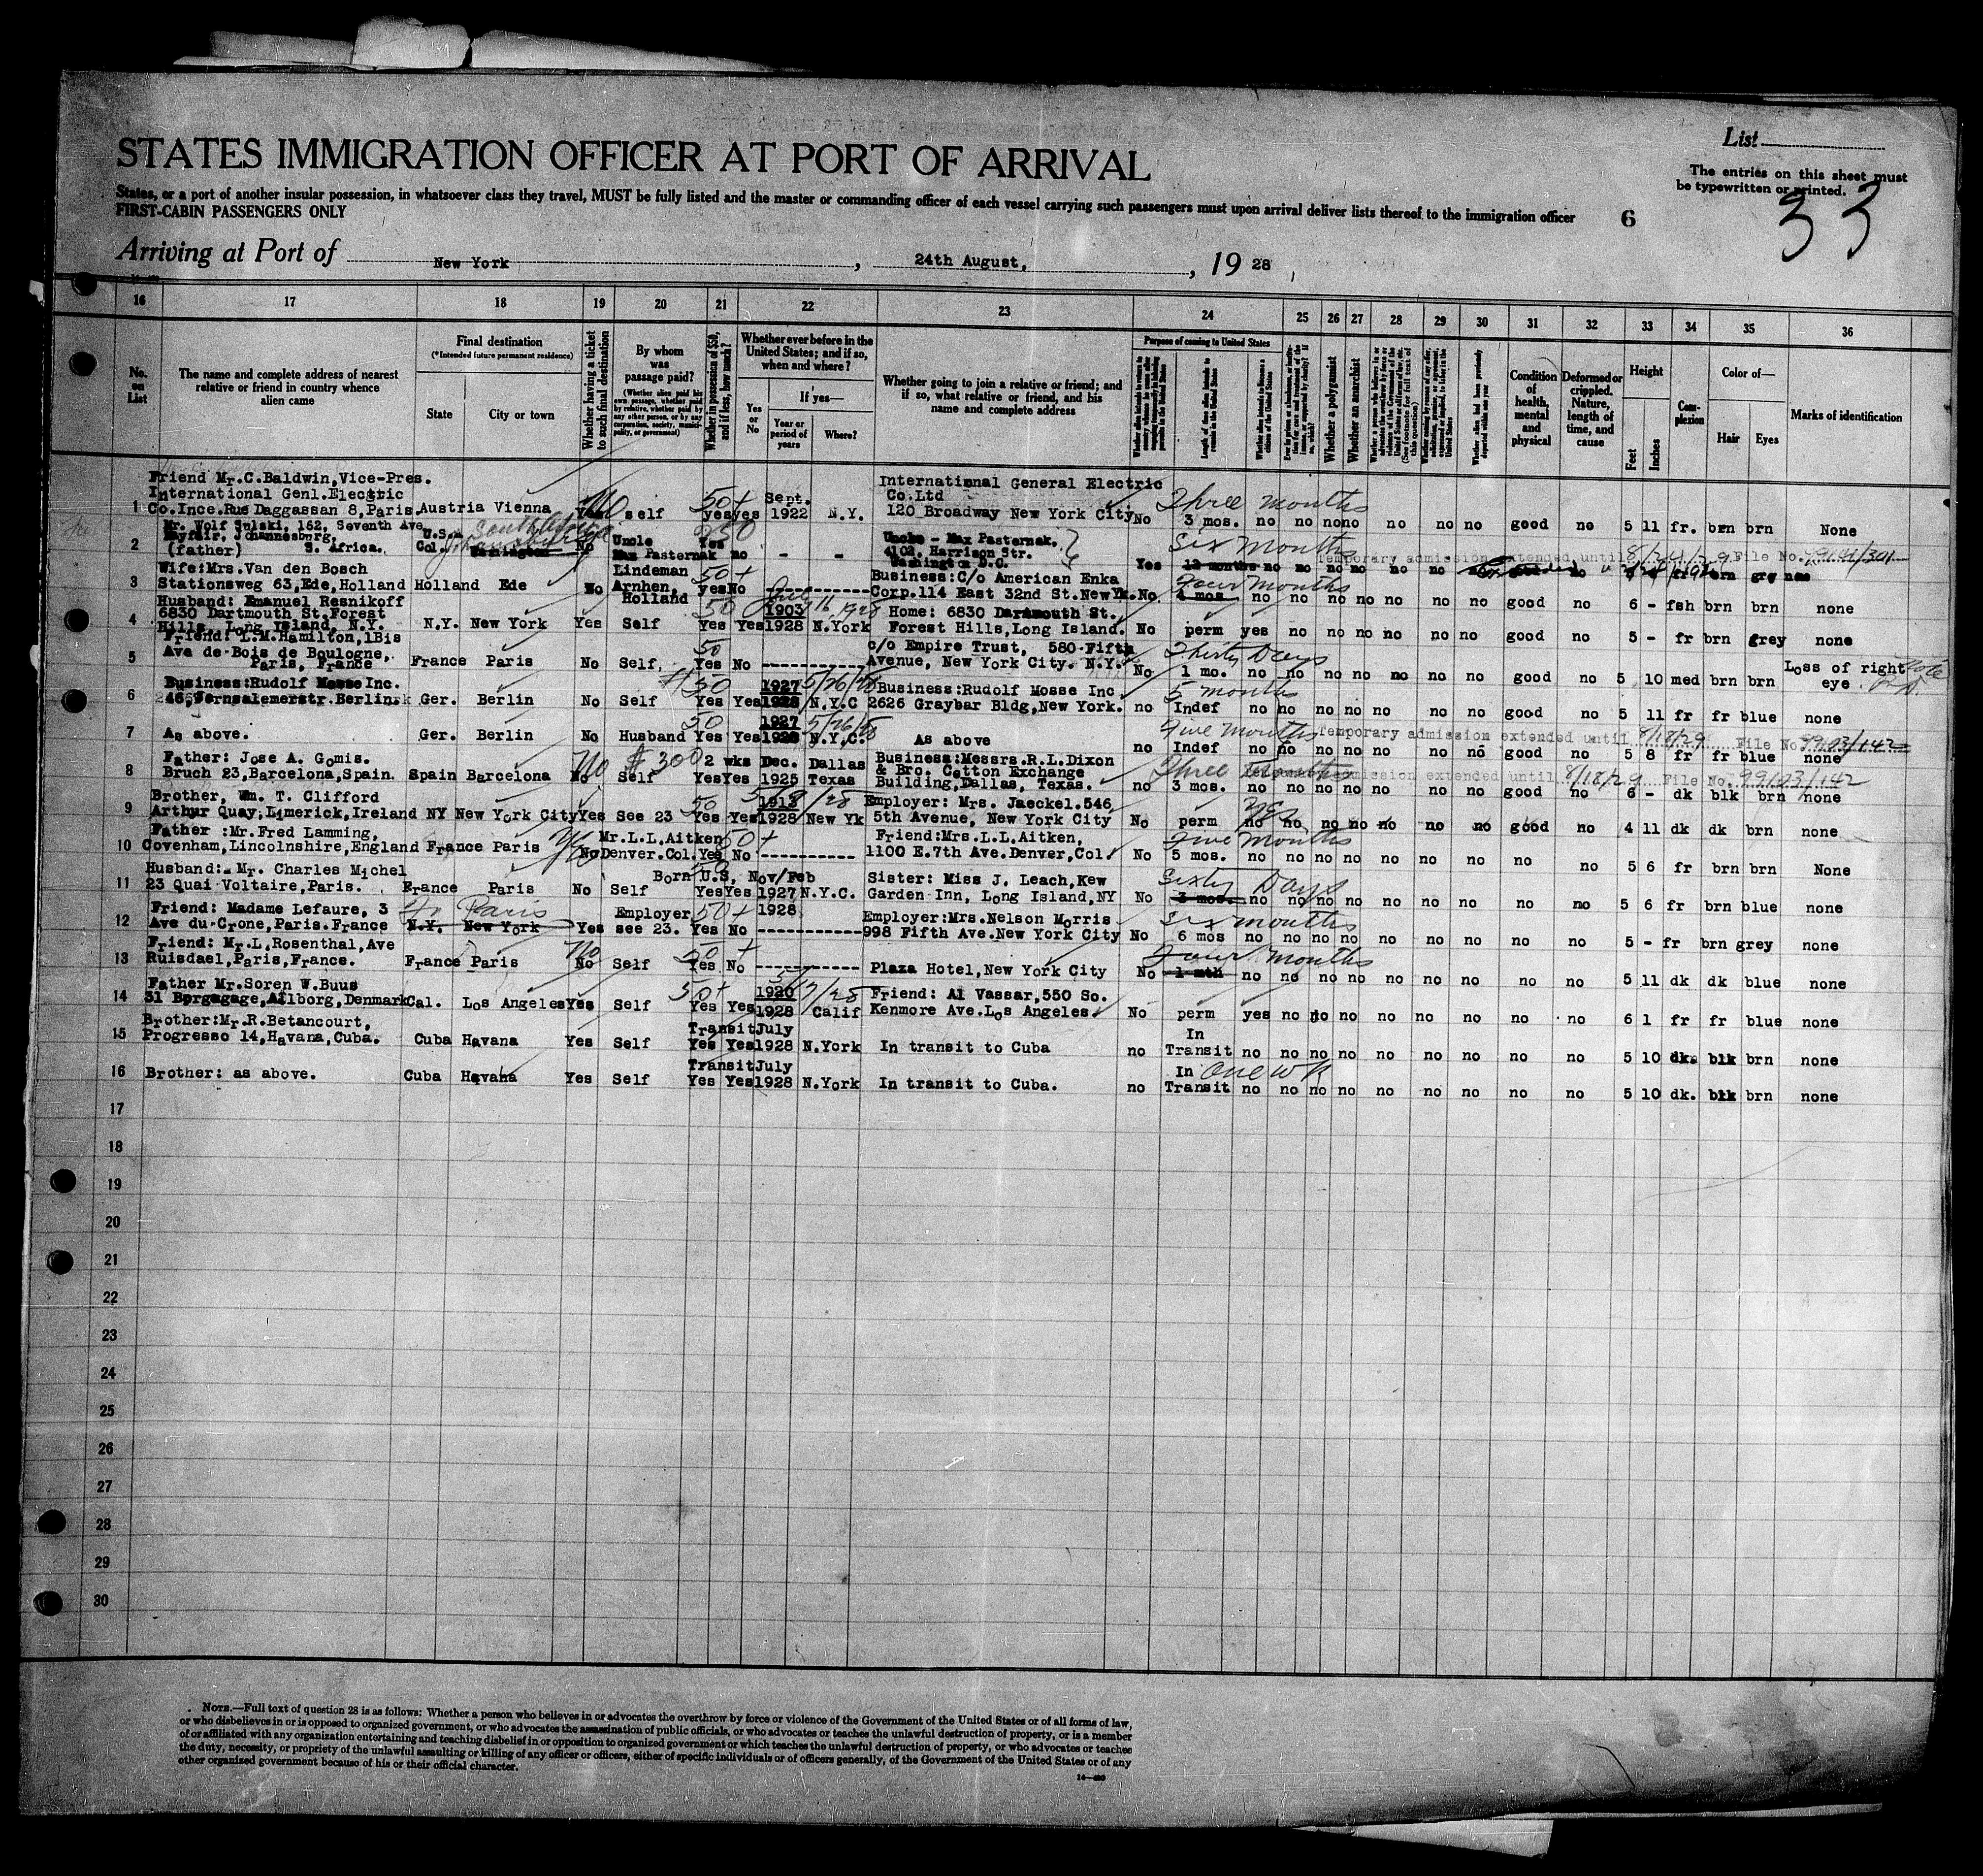 List
STATES IMMIGRATION OFFICER AT PORT OF ARRIVAL
The entries on this sheet must
be typewritten or printed.
States, or a port of another insular possession, in whatsoever class they travel, MUST be fully listed and the master or commanding officer of each vessel carrying such passengers must upon arrival deliver lists thereof to the immigration officer
FIRST-CABIN PASSENGERS ONLY
6
33
Arriving at Port of New York, 24th August, 1928
16 17 18 19 20 21 22 23 24 25 26 27 28 29 30 31 32 33 34 35 36
No. on List
The name and complete address of nearest relative or friend in country whence alien came
Final destination
(*Intended future permanent residence)
State
City or town
Whether having a ticket to such final destination
By whom was passage paid?
(Whether alien paid his own passage, whether paid by relative, whether paid by any other person, or by any corporation, society, municipality, or government)
Whether in possession of $50, and if less, how much?
Whether ever before in the United States; and if so, when and where?
Yes or No
If yes—
Year or period of years
Where?
Whether going to join a relative or friend; and if so, what relative or friend, and his name and complete address
Purpose of coming to United States
Length of time alien intends to remain in the United States
Whether a polygamist
Whether an anarchist
Condition of health, mental and physical
Deformed or crippled. Nature, length of time, and cause
Height
Feet
Inches
Complexion
Color of—
Hair
Eyes
Marks of identification
Friend Mr.C.Baldwin,Vice-Pres.
International Genl.Elecstric
1 Co.Ince.Rue Daggassan 8,Paris. Austria Vienna No self 50+ yes yes Sept. 1922 N.Y. International General Electric Co.Ltd 120 Broadway New York City No Three months 3 mos. no no no no no no no good no 5 11 fr. brn brn None
Mr. Wolf Sulski, 162, Seventh Ave
Mayfair, Johannesburg,
2 (father) S. Africa. U.S.A Col. South Africa Johannesburg Washington No Uncle Max Pasternak 250 Yes no - - Uncle - Max Pasternak, 4102, Harrison Str. Washington D.C. Yes Six months 12 months no no no no no no no
Temporary admission extended until 8/24/29 File No.
Wife:Mrs.Van den Bosch
3 Stationsweg 63,Ede,Holland Holland Ede No Lindeman Arnhen, Holland 50+ yes No Business:C/o American Enka Corp.114 East 32nd St.New Yk. No Four months 4 mos. no no no no no no no good no 6 - fsh brn brn none
Husband: Emanuel Resnikoff
6830 Dartmouth St,Forest
4 Hills, Long Island, N.Y. N.Y. New York Yes Self 50 Yes Yes 1903 1928 N.York Home: 6830 Dartmouth St., Forest Hills,Long Island. No perm yes no no no no no no good no 5 - fr brn grey none
Friend: L.M.Hamilton,1Bis
5 Ave de Bois de Boulogne, Paris, France France Paris No Self, 50 Yes No c/o Empire Trust, 580 Fifth Avenue, New York City. N.Y. No Thirty Days 1 mo. no no no no no no no good no 5 10 med brn brn Loss of right eye
Business:Rudolf Mosse Inc.
6 46,Jernsalemerstr.Berlin Ger. Berlin No Self $50 Yes Yes 1927 1928 5/26/28 N.Y.C Business:Rudolf Mosse Inc 2626 Graybar Bldg,New York. no 5 months Indef no no no no no no no good no 5 11 fr fr blue none
7 As above. Ger. Berlin No Husband 50 Yes Yes 1927 1928 5/26/28 N.Y.C. As above no Five months Indef no no no no no no no good no 5 8 fr fr blue none
Temporary admission extended until 8/18/29 File No. 99103/142
Father: Jose A. Gomis.
8 Bruch 23,Barcelona,Spain. Spain Barcelona No Self $300 2 wks Yes Yes Dec. 1925 Dallas Texas Business:Messrs.R.L.Dixon & Bro. Cotton Exchange Building,Dallas, Texas. no Three months 3 mos. no no no no no no no good no 6 - dk blk brn none
admission extended until 8/18/29 File No. 99103/142
Brother, Wm. T. Clifford
9 Arthur Quay,Limerick,Ireland NY New York City Yes See 23 50 Yes Yes 1913 1928 New Yk Employer: Mrs. Jaeckel.546 5th Avenue, New York City No perm yes no no no no no no no good no 4 11 dk dk brn none
Father :Mr.Fred Lamming,
10 Covenham,Lincolnshire,England France Paris No Mr.L.L.Aitken Denver.Col. 50+ Yes No Friend:Mrs.L.L.Aitken, 1100 E.7th Ave.Denver,Col. No Five months 5 mos. no no no no no no no no no 5 6 fr brn brn None
Husband:- Mr. Charles Michel
11 23 Quai Voltaire,Paris. France Paris No Self Born U.S, Yes Yes Nov/Feb 1927 1928 N.Y.C. Sister: Miss J. Leach,Kew Garden Inn, Long Island,NY No Sixty Days 3 mos. no no no no no no no no no 5 6 fr brn blue none
Friend: Madame Lefaure, 3
12 Ave du Crone,Paris.France Fr Paris N.Y. New York Yes Employer see 23. 50+ Yes No Employer:Mrs.Nelson Morris 998 Fifth Ave.New York City No Six months 6 mos no no no no no no no no no 5 - fr brn grey none
Friend: Mr.L.Rosenthal,Ave
13 Ruisdael,Paris,France. France Paris No Self 50+ Yes No Plaza Hotel,New York City No Four months 1 mth no no no no no no no no no 5 11 dk dk blue none
Father Mr.Soren W.Buus
14 31 Borgagage,Ailborg,Denmark Cal. Los Angeles Yes Self 50+ Yes Yes 1920 1928 Calif Friend: Al Vassar,550 So. Kenmore Ave.Los Angeles. No perm yes no no no no no no no no 6 1 fr fr blue none
Brother:Mr.R.Betancourt,
15 Progresso 14,Havana,Cuba. Cuba Havana Yes Self Transit Yes Yes July 1928 N.York In transit to Cuba no In Transit no no no no no no no no no 5 10 dk. blk brn none
16 Brother: as above. Cuba Havana Yes Self Transit Yes Yes July 1928 N.York In transit to Cuba. no In Transit One wk no no no no no no no no no 5 10 dk. blk brn none
17
18
19
20
21
22
23
24
25
26
27
28
29
30
NOTE.—Full text of question 28 is as follows: Whether a person who believes in or advocates the overthrow by force or violence of the Government of the United States or of all forms of law,
or who disbelieves in or is opposed to organized government, or who advocates the assassination of public officials, or who advocates or teaches the unlawful destruction of property, or is a member
of or affiliated with any organization entertaining and teaching disbelief in or opposition to organized government or which teaches the unlawful destruction of property, or who advocates or teaches
the duty, necessity, or propriety of the unlawful assaulting or killing of any officer or officers, either of specific individuals or of officers generally, of the Government of the United States or of any
other organized government because of his or their official character.